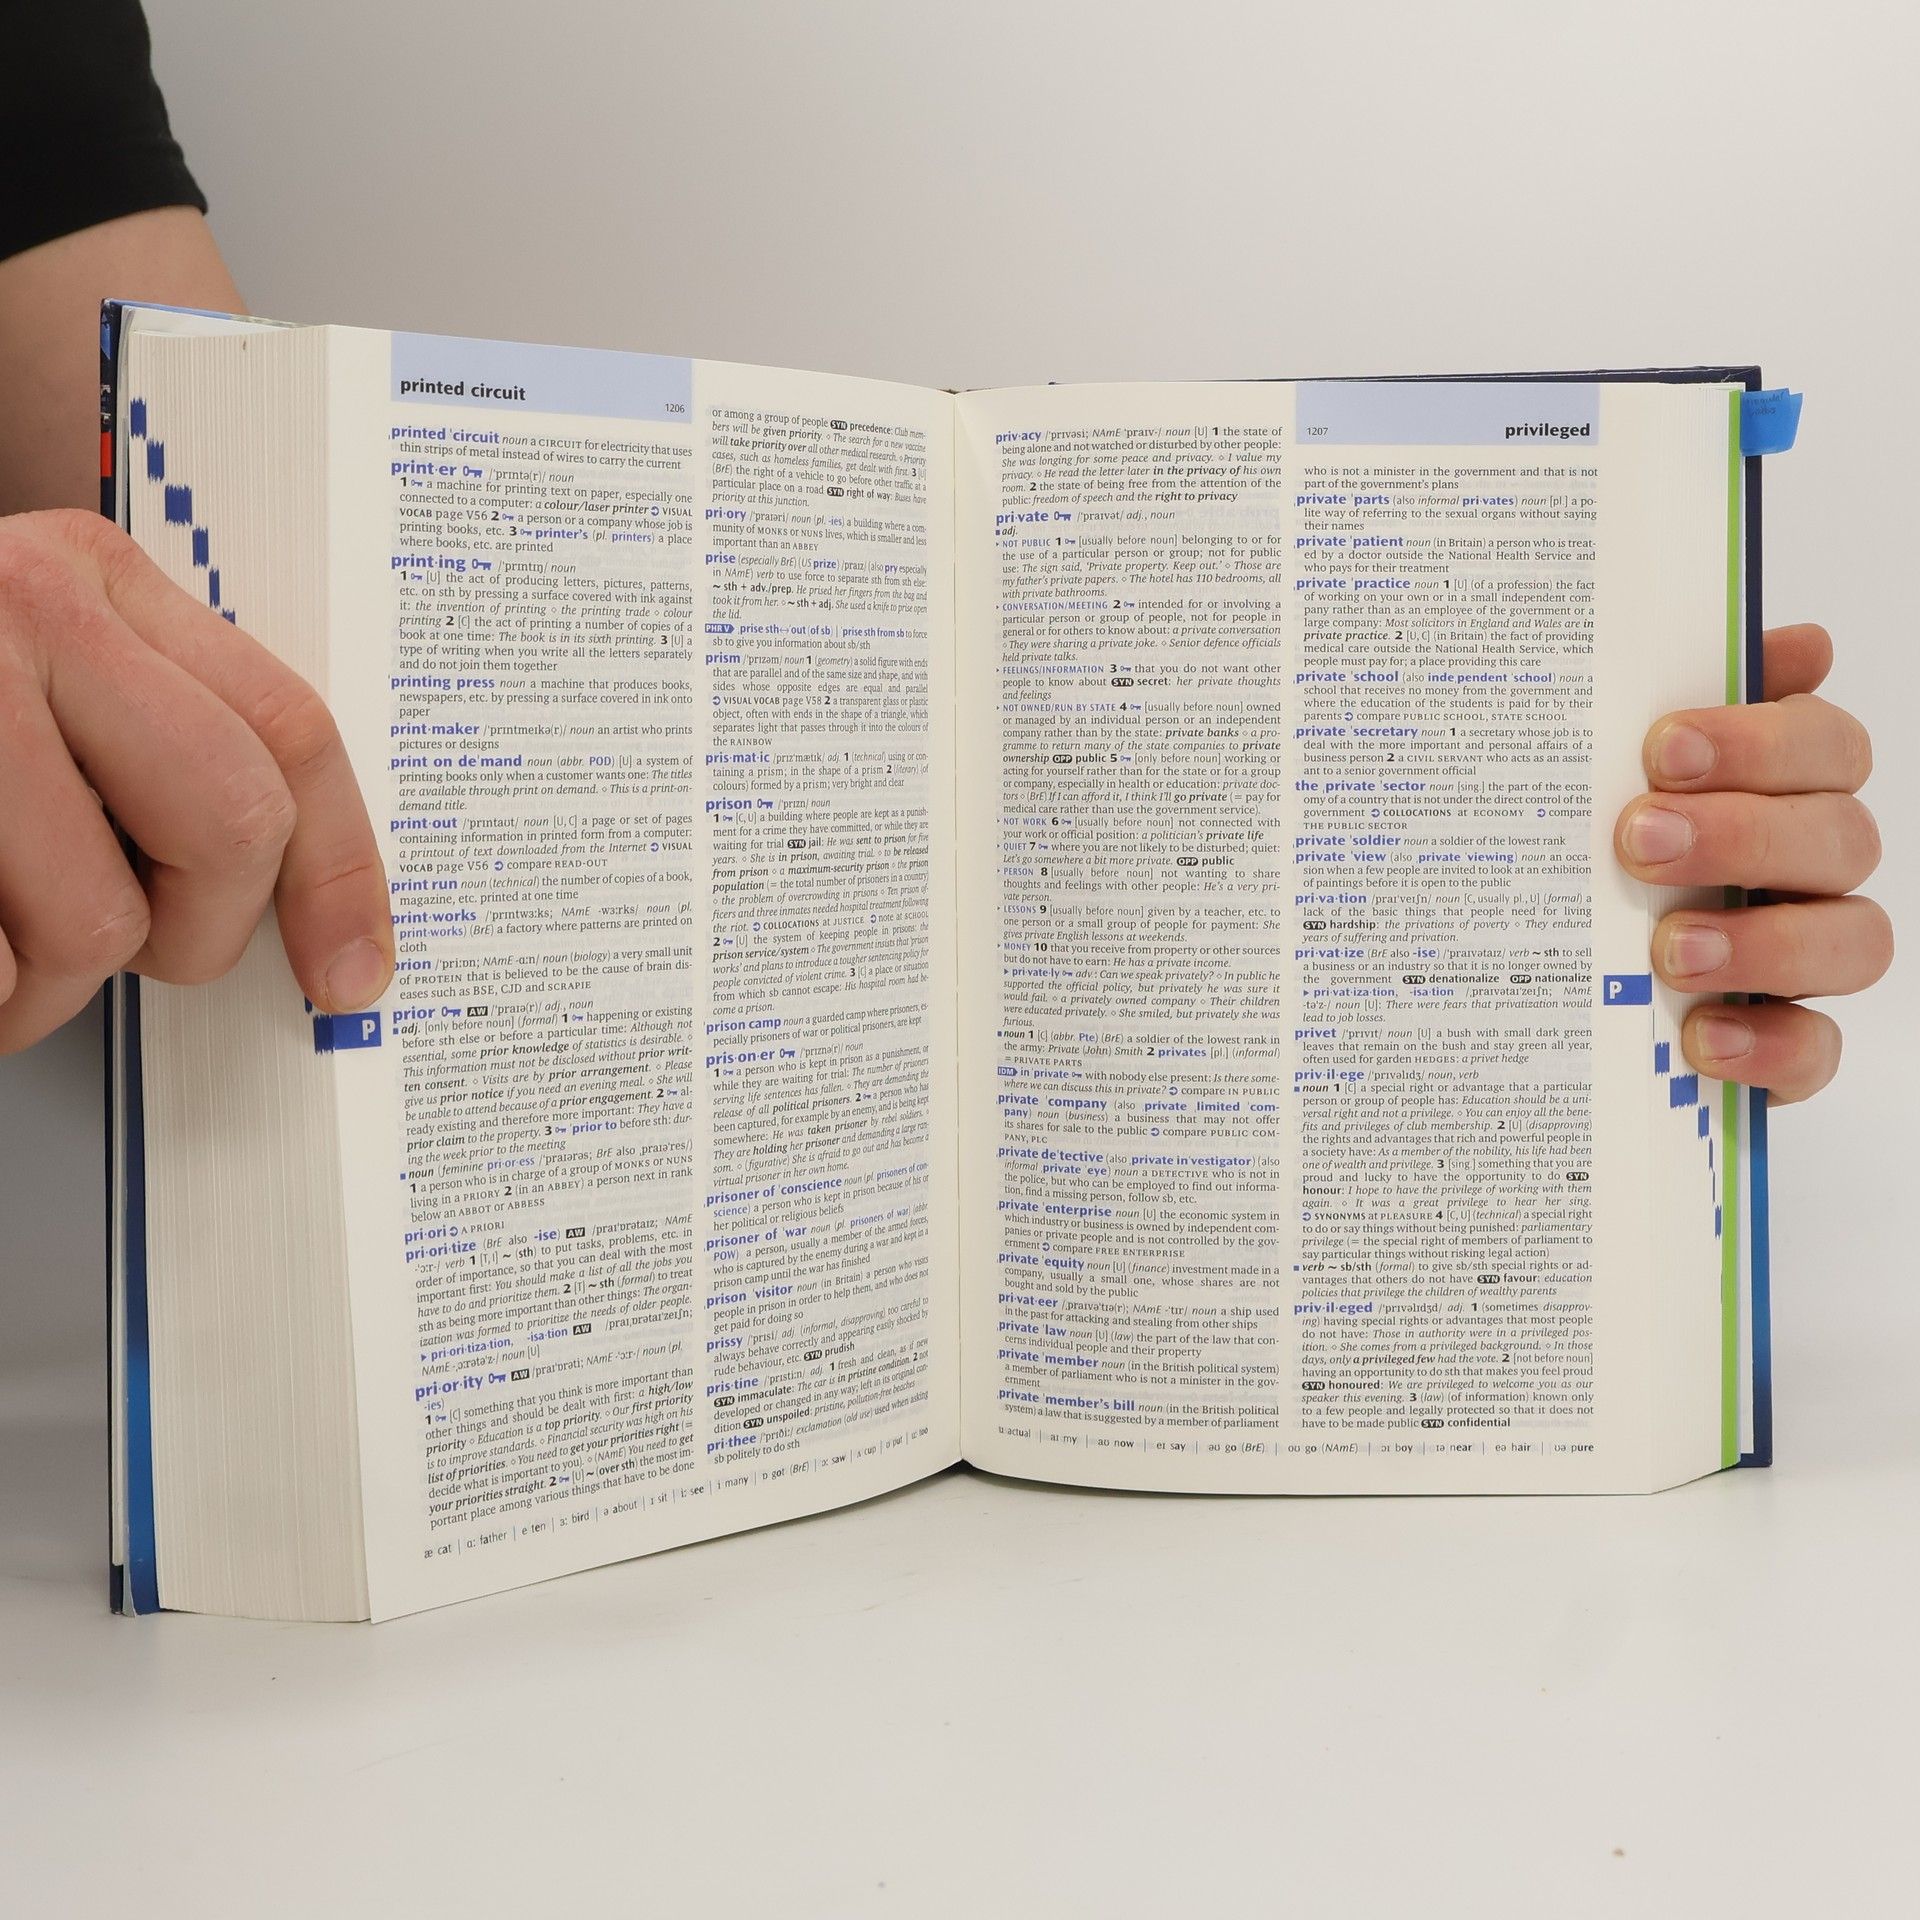 printed circuit
1206
printed ˈcircuit noun a CIRCUIT for electricity that uses
thin strips of metal instead of wires to carry the current
print·er /ˈprɪntə(r)/ noun
1 a machine for printing text on paper, especially one
connected to a computer: a colour/laser printer ➲ VISUAL
VOCAB page V56 2 a person or a company whose job is
printing books, etc. 3 printer's (pl. printers) a place
where books, etc. are printed
print·ing /ˈprɪntɪŋ/ noun
1 [U] the act of producing letters, pictures, patterns,
etc. on sth by pressing a surface covered with ink against
it: the invention of printing ◇ the printing trade ◇ colour
printing 2 [C] the act of printing a number of copies of a
book at one time: The book is in its sixth printing. 3 [U] a
type of writing when you write all the letters separately
and do not join them together
ˈprinting press noun a machine that produces books,
newspapers, etc. by pressing a surface covered in ink onto
paper
print·maker /ˈprɪntmeɪkə(r)/ noun an artist who prints
pictures or designs
ˌprint on deˈmand noun (abbr. POD) [U] a system of
printing books only when a customer wants one: The titles
are available through print on demand. ◇ This is a print-on-
demand title.
print·out /ˈprɪntaʊt/ noun [U, C] a page or set of pages
containing information in printed form from a computer:
a printout of text downloaded from the Internet ➲ VISUAL
VOCAB page V56 ➲ compare READ-OUT
ˈprint run noun (technical) the number of copies of a book,
magazine, etc. printed at one time
print·works /ˈprɪntwɜːks; NAmE -wɜːrks/ noun (pl.
print·works) (BrE) a factory where patterns are printed on
cloth
prion /ˈpriːɒn; NAmE -ɑːn/ noun (biology) a very small unit
of PROTEIN that is believed to be the cause of brain dis-
eases such as BSE, CJD and SCRAPIE
prior AW /ˈpraɪə(r)/ adj., noun
P
■ adj. [only before noun] (formal) 1 happening or existing
before sth else or before a particular time: Although not
essential, some prior knowledge of statistics is desirable. ◇
This information must not be disclosed without prior writ-
ten consent. ◇ Visits are by prior arrangement. ◇ Please
give us prior notice if you need an evening meal. ◇ She will
be unable to attend because of a prior engagement. 2 al-
ready existing and therefore more important: They have a
prior claim to the property. 3 ˈprior to before sth: dur-
ing the week prior to the meeting
■ noun (feminine pri·or·ess /ˈpraɪərəs; BrE also ˌpraɪəˈres/)
1 a person who is in charge of a group of MONKS or NUNS
living in a PRIORY 2 (in an ABBEY) a person next in rank
below an ABBOT or ABBESS
pri·ori ➲ A PRIORI
pri·ori·tize (BrE also -ise) AW /praɪˈɒrətaɪz; NAmE
-ˈɔːr-/ verb 1 [T, I] ~ (sth) to put tasks, problems, etc. in
order of importance, so that you can deal with the most
important first: You should make a list of all the jobs you
have to do and prioritize them. 2 [T] ~ sth (formal) to treat
sth as being more important than other things: The organ-
ization was formed to prioritize the needs of older people.
▶ pri·ori·tiza·tion, -isa·tion AW /praɪˌɒrətaɪˈzeɪʃn;
NAmE -ˌɔːrətəˈz-/ noun [U]
pri·or·ity AW /praɪˈɒrəti; NAmE -ˈɔːr-/ noun (pl.
-ies)
1 [C] something that you think is more important than
other things and should be dealt with first: a high/low
priority ◇ Education is a top priority. ◇ Our first priority
is to improve standards. ◇ Financial security was high on his
list of priorities. ◇ You need to get your priorities right (=
decide what is important to you). ◇ (NAmE) You need to get
your priorities straight. 2 [U] ~ (over sth) the most im-
portant place among various things that have to be done
or among a group of people SYN precedence: Club mem-
bers will be given priority. ◇ The search for a new vaccine
will take priority over all other medical research. ◇ Priority
cases, such as homeless families, get dealt with first. 3 [U]
(BrE) the right of a vehicle to go before other traffic at a
particular place on a road SYN right of way: Buses have
priority at this junction.
pri·ory /ˈpraɪəri/ noun (pl. -ies) a building where a com-
munity of MONKS or NUNS lives, which is smaller and less
important than an ABBEY
prise (especially BrE) (US prize) /praɪz/ (also pry especially
in NAmE) verb to use force to separate sth from sth else:
~ sth + adv./prep. He prised her fingers from the bag and
took it from her. ◇ ~ sth + adj. She used a knife to prise open
the lid.
PHR V ˌprise sth↔ˈout (of sb) | ˈprise sth from sb to force
sb to give you information about sb/sth
prism /ˈprɪzəm/ noun 1 (geometry) a solid figure with ends
that are parallel and of the same size and shape, and with
sides whose opposite edges are equal and parallel
➲ VISUAL VOCAB page V58 2 a transparent glass or plastic
object, often with ends in the shape of a triangle, which
separates light that passes through it into the colours of
the RAINBOW
pris·mat·ic /prɪzˈmætɪk/ adj. 1 (technical) using or con-
taining a prism; in the shape of a prism 2 (literary) (of
colours) formed by a prism; very bright and clear
prison /ˈprɪzn/ noun
1 [C, U] a building where people are kept as a punish-
ment for a crime they have committed, or while they are
waiting for trial SYN jail: He was sent to prison for five
years. ◇ She is in prison, awaiting trial. ◇ to be released
from prison ◇ a maximum-security prison ◇ the prison
population (= the total number of prisoners in a country)
◇ the problem of overcrowding in prisons ◇ Ten prison of-
ficers and three inmates needed hospital treatment following
the riot. ➲ COLLOCATIONS at JUSTICE ➲ note at SCHOOL
2 [U] the system of keeping people in prisons: the
prison service/system ◇ The government insists that 'prison
works' and plans to introduce a tougher sentencing policy for
people convicted of violent crime. 3 [C] a place or situation
from which sb cannot escape: His hospital room had be-
come a prison.
ˈprison camp noun a guarded camp where prisoners, es-
pecially prisoners of war or political prisoners, are kept
pris·on·er /ˈprɪznə(r)/ noun
1 a person who is kept in prison as a punishment, or
while they are waiting for trial: The number of prisoners
serving life sentences has fallen. ◇ They are demanding the
release of all political prisoners. 2 a person who has
been captured, for example by an enemy, and is being kept
somewhere: He was taken prisoner by rebel soldiers. ◇
They are holding her prisoner and demanding a large ran-
som. ◇ (figurative) She is afraid to go out and has become a
virtual prisoner in her own home.
ˌprisoner of ˈconscience noun (pl. prisoners of con-
science) a person who is kept in prison because of his or
her political or religious beliefs
ˌprisoner of ˈwar noun (pl. prisoners of war) (abbr.
POW) a person, usually a member of the armed forces,
who is captured by the enemy during a war and kept in a
prison camp until the war has finished
ˌprison ˈvisitor noun (in Britain) a person who visits
people in prison in order to help them, and who does not
get paid for doing so
prissy /ˈprɪsi/ adj. (informal, disapproving) too careful to
always behave correctly and appearing easily shocked by
rude behaviour, etc. SYN prudish
pris·tine /ˈprɪstiːn/ adj. 1 fresh and clean, as if new
SYN immaculate: The car is in pristine condition. 2 not
developed or changed in any way; left in its original con-
dition SYN unspoiled: pristine, pollution-free beaches
pri·thee /ˈprɪðiː/ exclamation (old use) used when asking
sb politely to do sth
æ cat | ɑː father | e ten | ɜː bird | ə about | ɪ sit | iː see | i many | ɒ got (BrE) | ɔː saw | ʌ cup | ʊ put | uː too
1207
privileged
priv·acy /ˈprɪvəsi; NAmE ˈpraɪv-/ noun [U] 1 the state of
being alone and not watched or disturbed by other people:
She was longing for some peace and privacy. ◇ I value my
privacy. ◇ He read the letter later in the privacy of his own
room. 2 the state of being free from the attention of the
public: freedom of speech and the right to privacy
pri·vate /ˈpraɪvət/ adj., noun
■ adj.
▸ NOT PUBLIC 1 [usually before noun] belonging to or for
the use of a particular person or group; not for public
use: The sign said, 'Private property. Keep out.' ◇ Those are
my father's private papers. ◇ The hotel has 110 bedrooms, all
with private bathrooms.
▸ CONVERSATION/MEETING 2 intended for or involving a
particular person or group of people, not for people in
general or for others to know about: a private conversation
◇ They were sharing a private joke. ◇ Senior defence officials
held private talks.
▸ FEELINGS/INFORMATION 3 that you do not want other
people to know about SYN secret: her private thoughts
and feelings
▸ NOT OWNED/RUN BY STATE 4 [usually before noun] owned
or managed by an individual person or an independent
company rather than by the state: private banks ◇ a pro-
gramme to return many of the state companies to private
ownership OPP public 5 [only before noun] working or
acting for yourself rather than for the state or for a group
or company, especially in health or education: private doc-
tors ◇ (BrE) If I can afford it, I think I'll go private (= pay for
medical care rather than use the government service).
▸ NOT WORK 6 [usually before noun] not connected with
your work or official position: a politician's private life
▸ QUIET 7 where you are not likely to be disturbed; quiet:
Let's go somewhere a bit more private. OPP public
▸ PERSON 8 [usually before noun] not wanting to share
thoughts and feelings with other people: He's a very pri-
vate person.
▸ LESSONS 9 [usually before noun] given by a teacher, etc. to
one person or a small group of people for payment: She
gives private English lessons at weekends.
▸ MONEY 10 that you receive from property or other sources
but do not have to earn: He has a private income.
▶ pri·vate·ly adv.: Can we speak privately? ◇ In public he
supported the official policy, but privately he was sure it
would fail. ◇ a privately owned company ◇ Their children
were educated privately. ◇ She smiled, but privately she was
furious.
■ noun 1 [C] (abbr. Pte) (BrE) a soldier of the lowest rank in
the army: Private (John) Smith 2 privates [pl.] (informal)
= PRIVATE PARTS
IDM in ˈprivate with nobody else present: Is there some-
where we can discuss this in private? ➲ compare IN PUBLIC
ˌprivate ˈcompany (also ˌprivate ˌlimited ˈcom-
pany) noun (business) a business that may not offer
its shares for sale to the public ➲ compare PUBLIC COM-
PANY, PLC
ˌprivate deˈtective (also ˌprivate inˈvestigator) (also
informal ˌprivate ˈeye) noun a DETECTIVE who is not in
the police, but who can be employed to find out informa-
tion, find a missing person, follow sb, etc.
ˌprivate ˈenterprise noun [U] the economic system in
which industry or business is owned by independent com-
panies or private people and is not controlled by the gov-
ernment ➲ compare FREE ENTERPRISE
ˌprivate ˈequity noun [U] (finance) investment made in a
company, usually a small one, whose shares are not
bought and sold by the public
pri·vat·eer /ˌpraɪvəˈtɪə(r); NAmE -ˈtɪr/ noun a ship used
in the past for attacking and stealing from other ships
ˌprivate ˈlaw noun [U] (law) the part of the law that con-
cerns individual people and their property
ˌprivate ˈmember noun (in the British political system)
a member of parliament who is not a minister in the gov-
ernment
ˌprivate ˈmember's bill noun (in the British political
system) a law that is suggested by a member of parliament
who is not a minister in the government and that is not
part of the government's plans
ˌprivate ˈparts (also informal pri·vates) noun [pl.] a po-
lite way of referring to the sexual organs without saying
their names
ˌprivate ˈpatient noun (in Britain) a person who is treat-
ed by a doctor outside the National Health Service and
who pays for their treatment
ˌprivate ˈpractice noun 1 [U] (of a profession) the fact
of working on your own or in a small independent com-
pany rather than as an employee of the government or a
large company: Most solicitors in England and Wales are in
private practice. 2 [U, C] (in Britain) the fact of providing
medical care outside the National Health Service, which
people must pay for; a place providing this care
ˌprivate ˈschool (also indeˌpendent ˈschool) noun a
school that receives no money from the government and
where the education of the students is paid for by their
parents ➲ compare PUBLIC SCHOOL, STATE SCHOOL
ˌprivate ˈsecretary noun 1 a secretary whose job is to
deal with the more important and personal affairs of a
business person 2 a CIVIL SERVANT who acts as an assist-
ant to a senior government official
the ˌprivate ˈsector noun [sing.] the part of the econ-
omy of a country that is not under the direct control of the
government ➲ COLLOCATIONS at ECONOMY ➲ compare
THE PUBLIC SECTOR
ˌprivate ˈsoldier noun a soldier of the lowest rank
ˌprivate ˈview (also ˌprivate ˈviewing) noun an occa-
sion when a few people are invited to look at an exhibition
of paintings before it is open to the public
pri·va·tion /praɪˈveɪʃn/ noun [C, usually pl., U] (formal) a
lack of the basic things that people need for living
SYN hardship: the privations of poverty ◇ They endured
years of suffering and privation.
pri·vat·ize (BrE also -ise) /ˈpraɪvətaɪz/ verb ~ sth to sell
a business or an industry so that it is no longer owned by
the government SYN denationalize OPP nationalize
▶ pri·vat·iza·tion, -isa·tion /ˌpraɪvətaɪˈzeɪʃn; NAmE
-təˈz-/ noun [U]: There were fears that privatization would
lead to job losses.
P
privet /ˈprɪvɪt/ noun [U] a bush with small dark green
leaves that remain on the bush and stay green all year,
often used for garden HEDGES: a privet hedge
priv·il·ege /ˈprɪvəlɪdʒ/ noun, verb
■ noun 1 [C] a special right or advantage that a particular
person or group of people has: Education should be a uni-
versal right and not a privilege. ◇ You can enjoy all the bene-
fits and privileges of club membership. 2 [U] (disapproving)
the rights and advantages that rich and powerful people in
a society have: As a member of the nobility, his life had been
one of wealth and privilege. 3 [sing.] something that you are
proud and lucky to have the opportunity to do SYN
honour: I hope to have the privilege of working with them
again. ◇ It was a great privilege to hear her sing.
➲ SYNONYMS at PLEASURE 4 [C, U] (technical) a special right
to do or say things without being punished: parliamentary
privilege (= the special right of members of parliament to
say particular things without risking legal action)
■ verb ~ sb/sth (formal) to give sb/sth special rights or ad-
vantages that others do not have SYN favour: education
policies that privilege the children of wealthy parents
priv·il·eged /ˈprɪvəlɪdʒd/ adj. 1 (sometimes disapprov-
ing) having special rights or advantages that most people
do not have: Those in authority were in a privileged pos-
ition. ◇ She comes from a privileged background. ◇ In those
days, only a privileged few had the vote. 2 [not before noun]
having an opportunity to do sth that makes you feel proud
SYN honoured: We are privileged to welcome you as our
speaker this evening. 3 (law) (of information) known only
to a few people and legally protected so that it does not
have to be made public SYN confidential
u actual | aɪ my | aʊ now | eɪ say | əʊ go (BrE) | oʊ go (NAmE) | ɔɪ boy | ɪə near | eə hair | ʊə pure